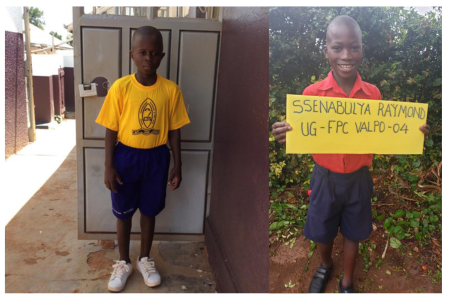 SSENABULYA RAYMOND
UG-FPC VALPO-04